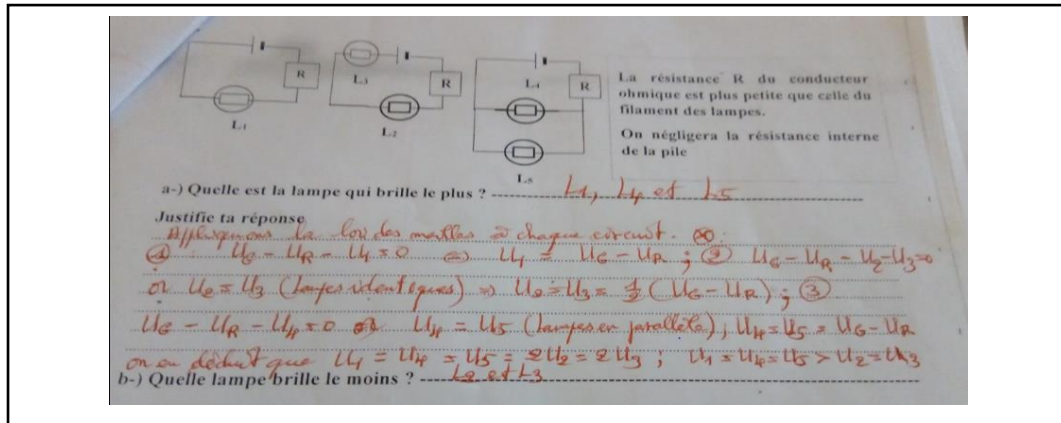 R
L₁
L₃
R
L₂
L₄
R
L₅
La résistance R du conducteur
ohmique est plus petite que celle du
filament des lampes.
On négligera la résistance interne
de la pile
a-) Quelle est la lampe qui brille le plus ? L1, L4 et L5
Justifie ta réponse
Appliquons la loi des mailles à chaque circuit.
① UG - UR - U1 = 0 ⇔ U1 = UG - UR ; ② UG - UR - U2 - U3 = 0
or U2 = U3 (lampes identiques) ⇒ U2 = U3 = 1/2 (UG - UR) ; ③
UG - UR - U4 = 0 or U4 = U5 (lampes en parallèle), U4 = U5 = UG - UR
on en déduit que U1 = U4 = U5 = 2U2 = 2U3 ; U1 = U4 = U5 > U2 = U3
b-) Quelle lampe brille le moins ? L2 et L3